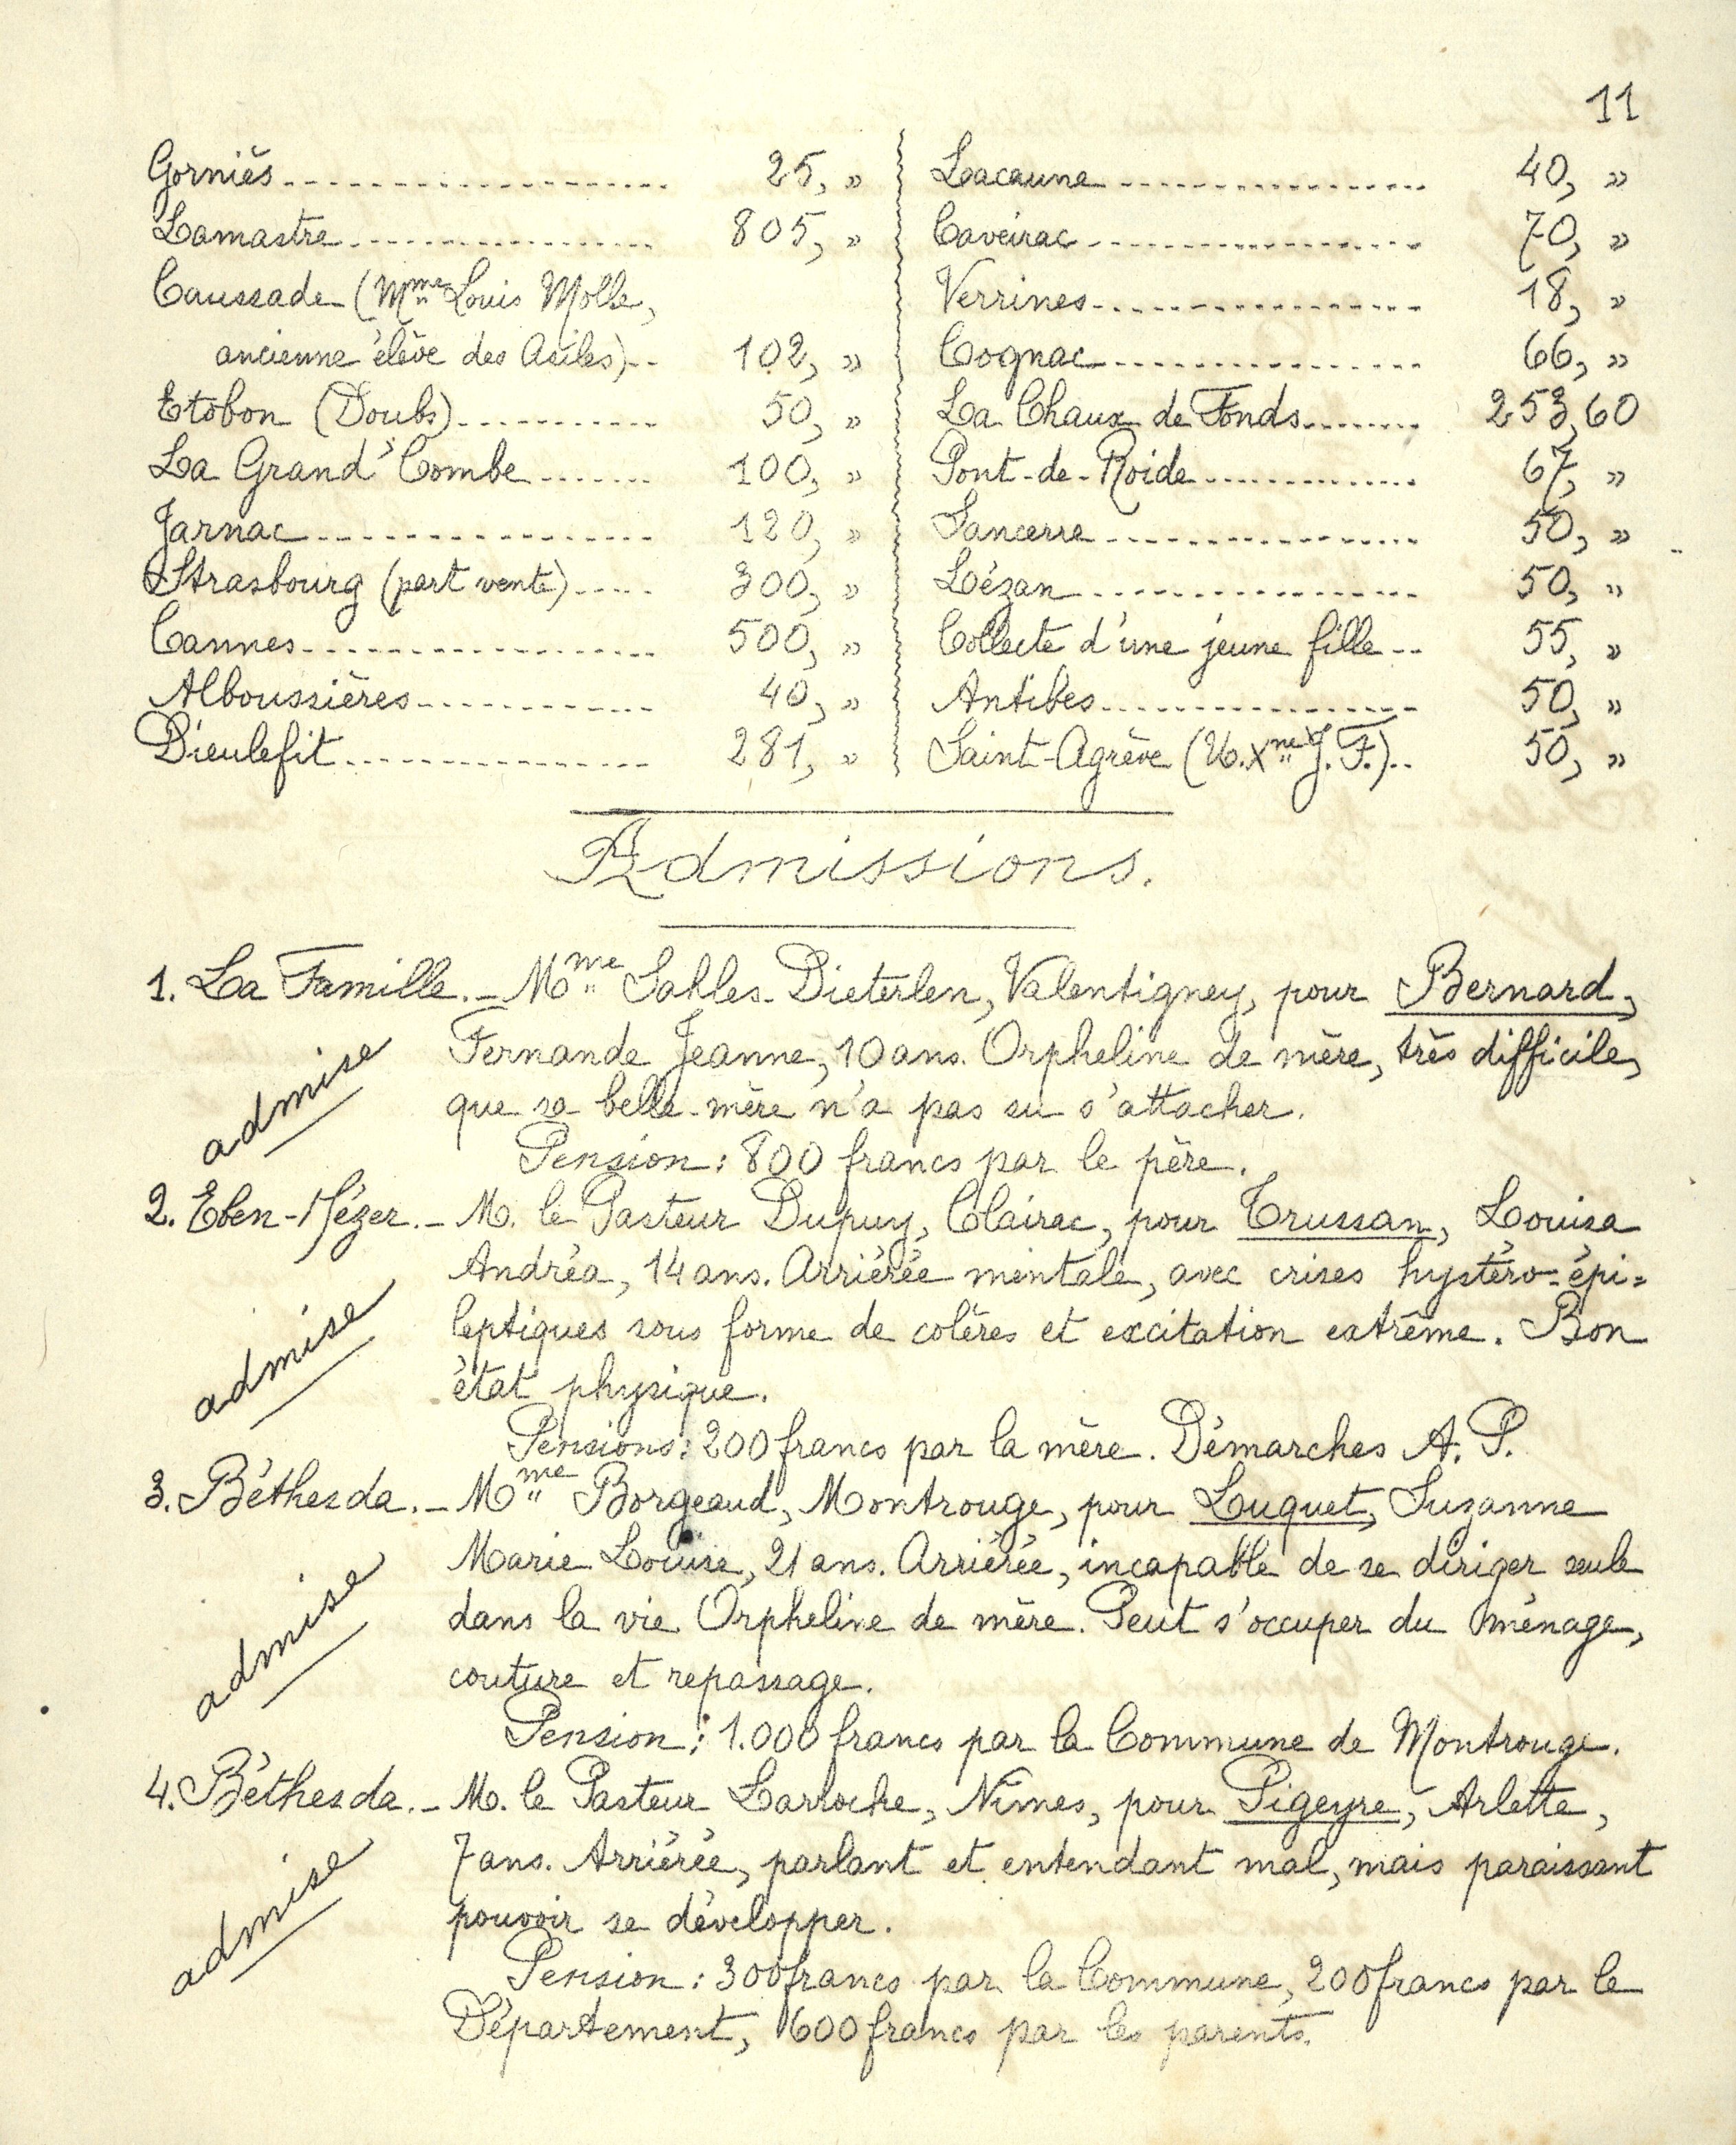 11
Gorniès 25, »
Lamastre 805, »
Caussade (Mme Louis Molle,
ancienne élève des Asiles) 102, »
Etobon (Doubs) 50, »
La Grand'Combe 100, »
Jarnac 120, »
Strasbourg (part vente) 300, »
Cannes 500, »
Alboussières 40, »
Dieulefit 281, »
Lacaune 40, »
Caveirac 70, »
Verrines 18, »
Cognac 66, »
La Chaux de Fonds 253,60
Pont-de-Roide 67, »
Sancerre 50, »
Lézan 50, »
Collecte d'une jeune fille 55, »
Antibes 50, »
Saint-Agrève (U.Xne J.F.) 50, »
Admissions.
1. La Famille. - Mme Sahler-Dieterlen, Valentigney, pour Bernard,
Fernande Jeanne, 10 ans. Orpheline de mère, très difficile,
admise
que sa belle-mère n'a pas su s'attacher.
Pension : 800 francs par le père.
2. Eben-Hézer. - M. le Pasteur Dupuy, Clairac, pour Trussan, Louisa
Andréa, 14 ans. Arriérée mentale, avec crises hystéro-épi=
admise
leptiques sous forme de colères et excitation extrême. Bon
état physique.
Pensions : 200 francs par la mère. Démarches A. P.
3. Béthesda. - Mme Borgeaud, Montrouge, pour Luquet, Suzanne
Marie Louise, 21 ans. Arriérée, incapable de se diriger seule
admise
dans la vie. Orpheline de mère. Peut s'occuper du ménage,
couture et repassage.
Pension : 1.000 francs par la Commune de Montrouge.
4. Béthesda. - M. le Pasteur Larroche, Nîmes, pour Pigeyre, Arlette,
7 ans. Arriérée, parlant et entendant mal, mais paraissant
admise
pouvoir se développer.
Pension : 300 francs par la Commune, 200 francs par le
Département, 600 francs par les parents.